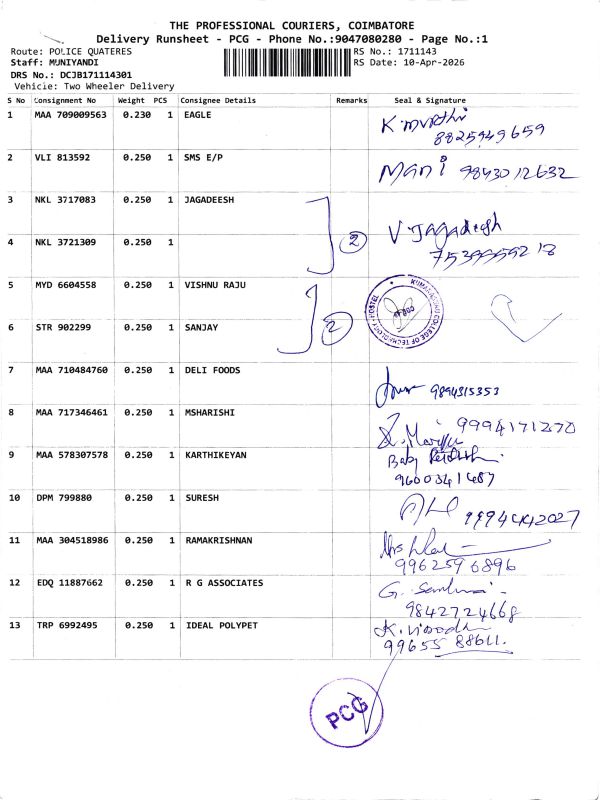 THE PROFESSIONAL COURIERS, COIMBATORE
Delivery Runsheet - PCG - Phone No.:9047080280 - Page No.:1
Route: POLICE QUATERES
Staff: MUNIYANDI
DRS No.: DCJB171114301
Vehicle: Two Wheeler Delivery
RS No.: 1711143
RS Date: 10-Apr-2026
S No Consignment No Weight PCS Consignee Details Remarks Seal & Signature
1 MAA 709009563 0.230 1 EAGLE
8825949659
2 VLI 813592 0.250 1 SMS E/P Mani 9843012632
3 NKL 3717083 0.250 1 JAGADEESH
4 NKL 3721309 0.250 1 2 V. Jagadesh
5 MYD 6604558 0.250 1 VISHNU RAJU
6 STR 902299 0.250 1 SANJAY 2
COLLEGE OF TECHNOLOGY
7 MAA 710484760 0.250 1 DELI FOODS
9894315353
8 MAA 717346461 0.250 1 MSHARISHI 9994171270
9 MAA 578307578 0.250 1 KARTHIKEYAN Baby
9600341487
10 DPM 799880 0.250 1 SURESH
11 MAA 304518986 0.250 1 RAMAKRISHNAN
9962596896
12 EDQ 11887662 0.250 1 R G ASSOCIATES
9842724668
13 TRP 6992495 0.250 1 IDEAL POLYPET
99655 88611.
PCG